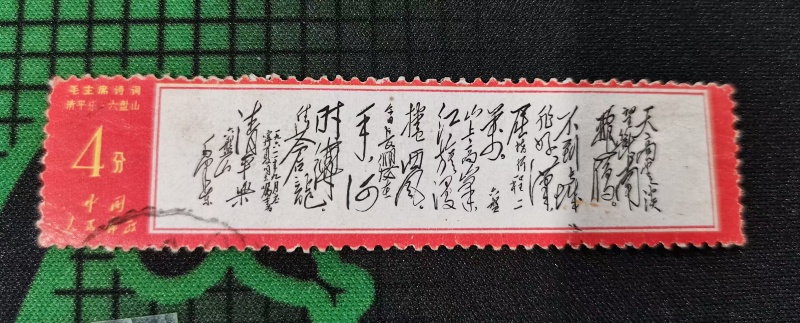 毛主席诗词
清平乐·六盘山
4分
中国
人民邮政
天高云淡
望断南
飞雁
不到长城
非好汉
屈指行程二
万 六盘
山上高峰
红旗漫
卷西风
今日长缨在
手何
时缚
住苍龙
一九六一年九月
清平乐
六盘山
毛泽东